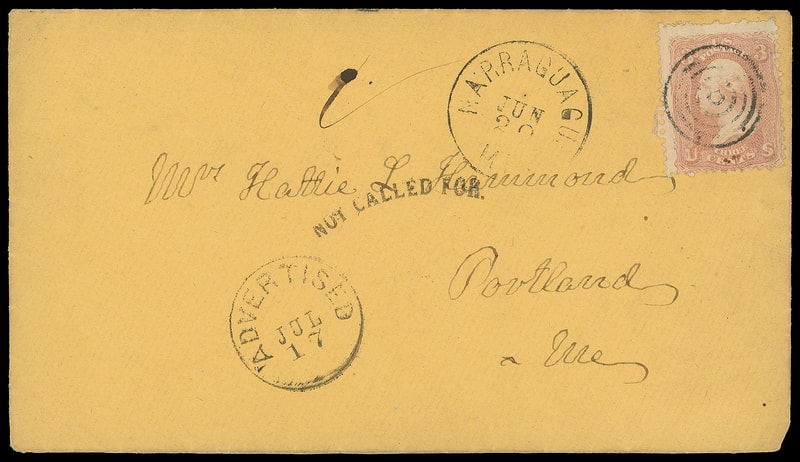 NARRAGUAGU
JUN
20
U 3 S
CENTS
Mrs Hattie L Hammond
NOT CALLED FOR.
Portland
Me
ADVERTISED
JUL
17